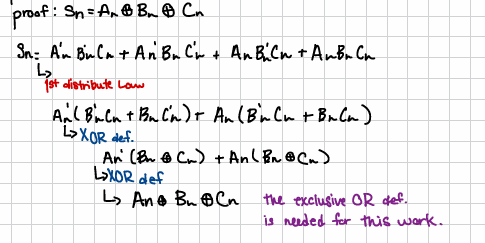 proof: Sn = An ⊕ Bn ⊕ Cn
Sn = A'n B'n Cn + An' Bn C'n + An B'n C'n + An Bn Cn
↳
1st distribute Law
An' ( B'n Cn + Bn C'n ) + An ( B'n Cn + Bn Cn )
↳ XOR def.
An' (Bn ⊕ Cn) + An ( Bn ⊕ Cn )
↳ XOR def
↳ An ⊕ Bn ⊕ Cn the exclusive OR def.
is needed for this work.